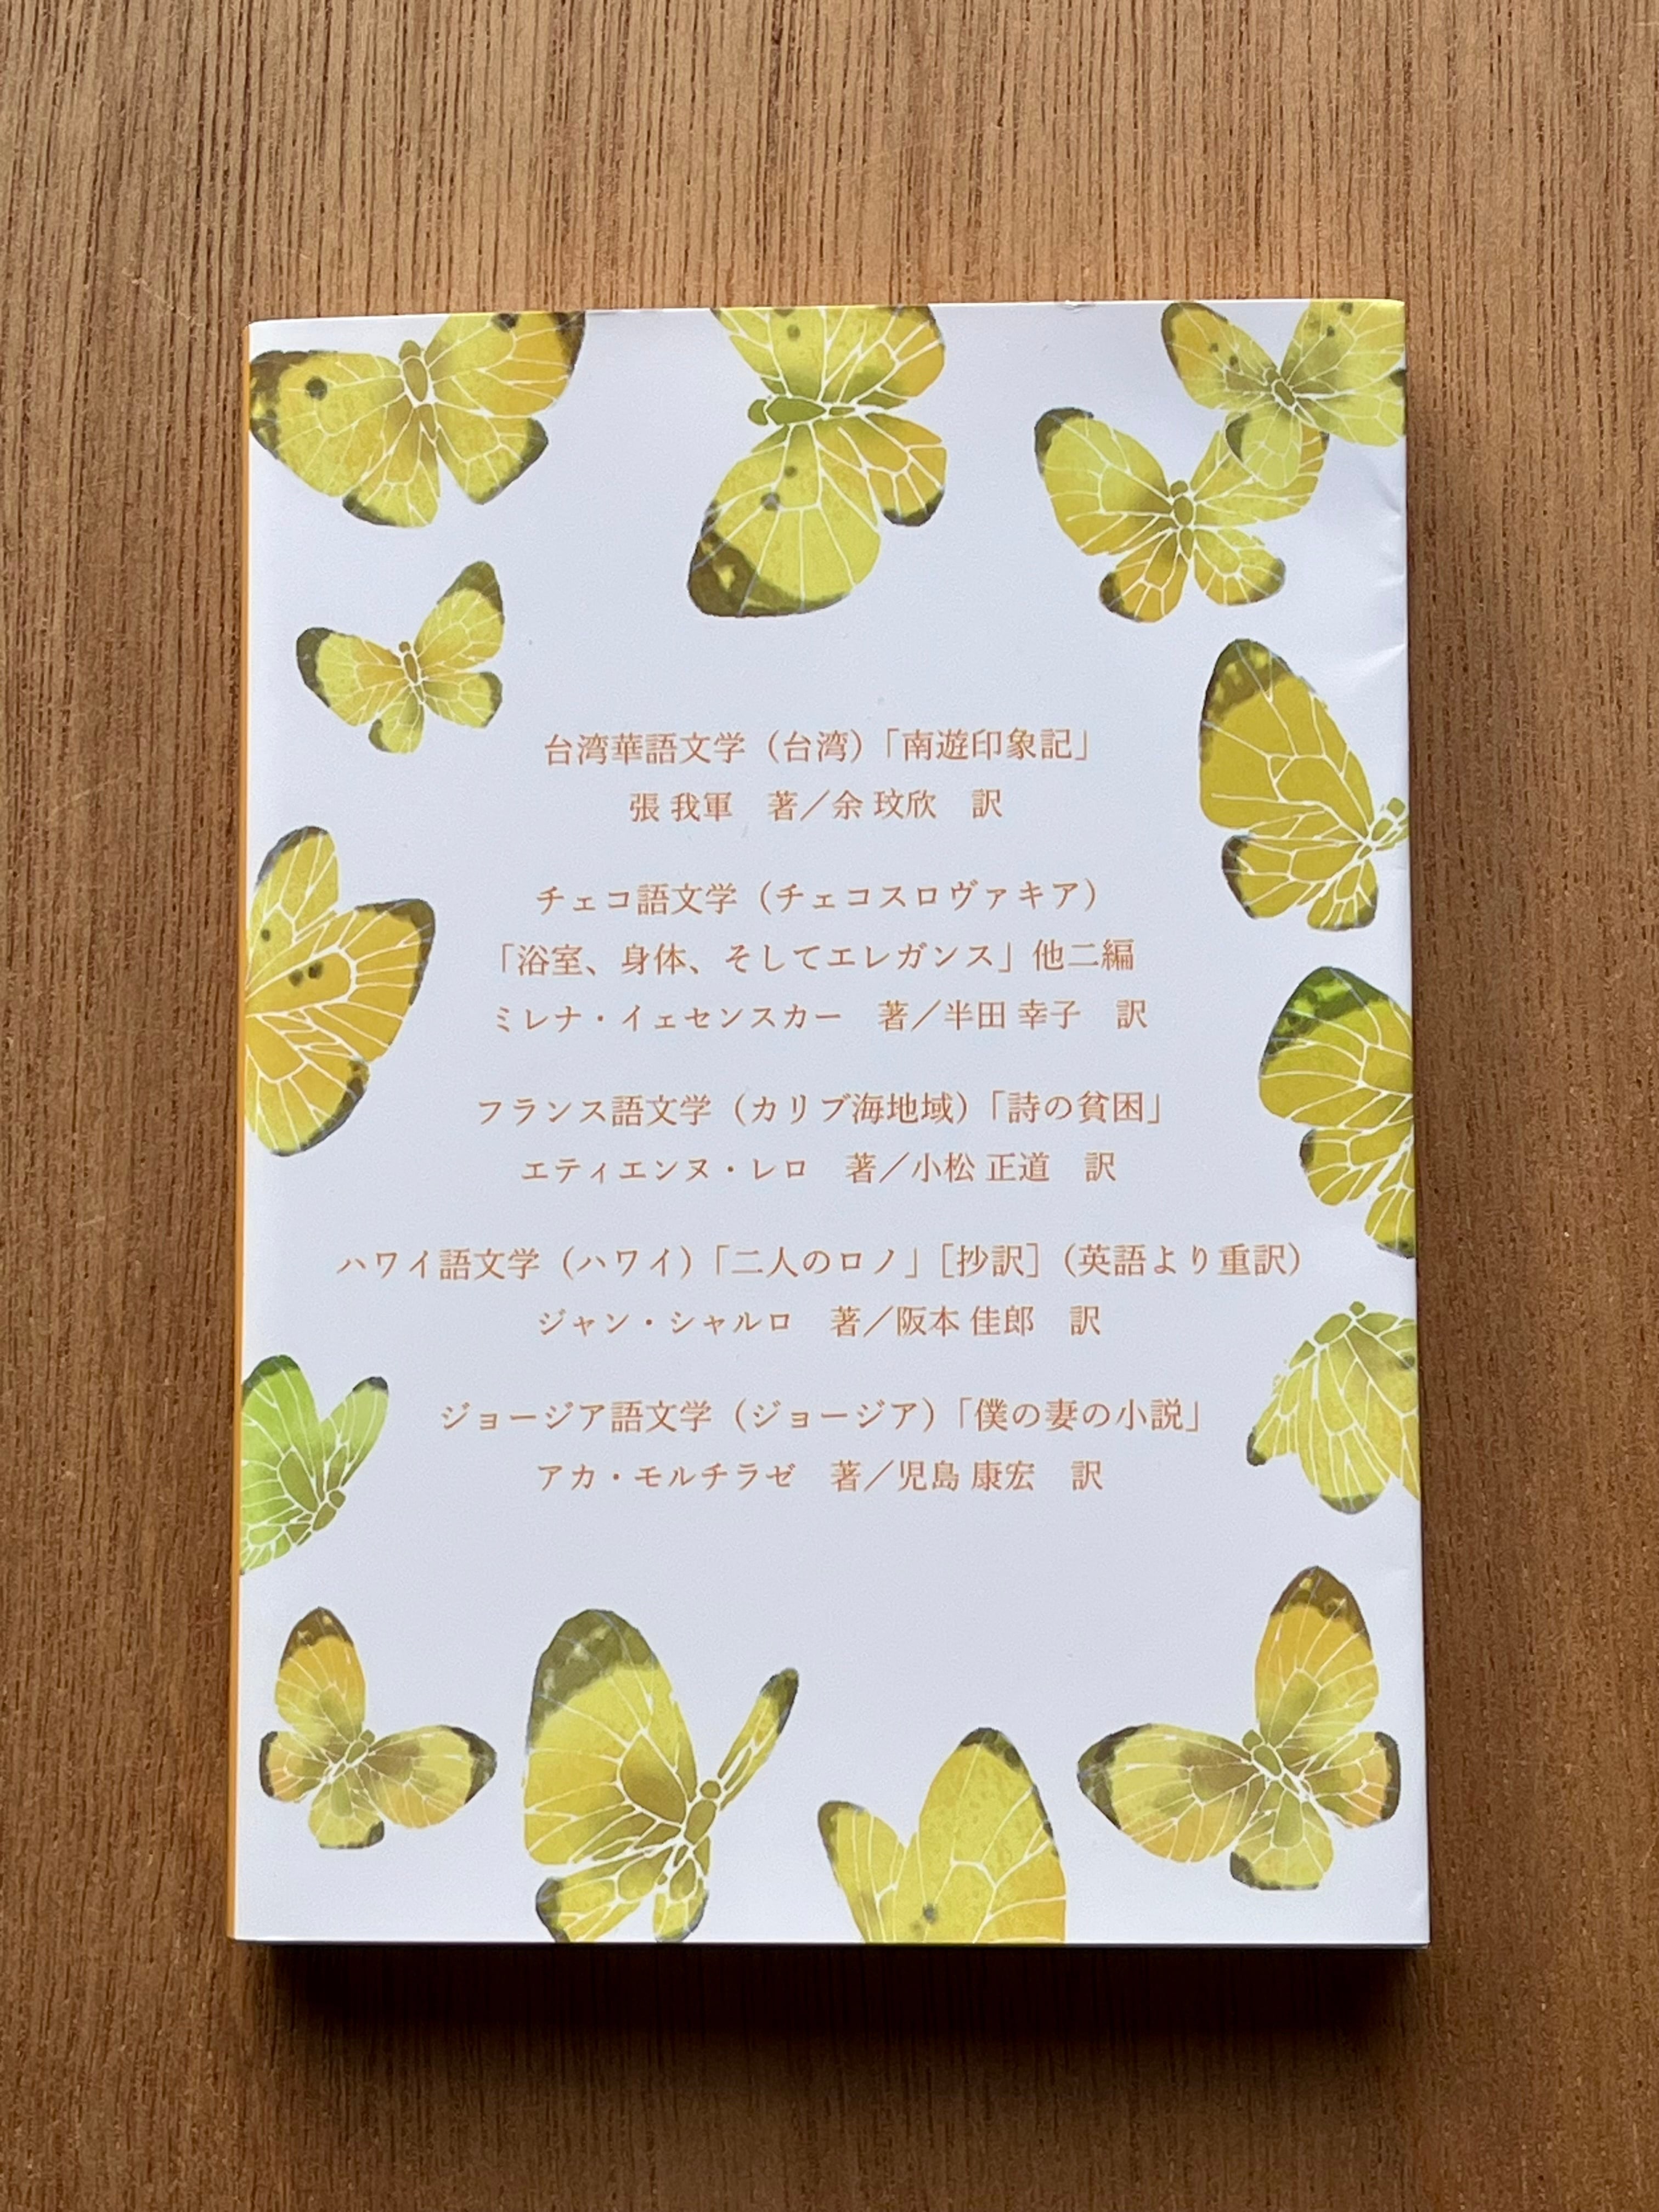 台湾華語文学（台湾）「南遊印象記」
張 我軍　著／余 玟欣　訳
チェコ語文学（チェコスロヴァキア）
「浴室、身体、そしてエレガンス」他二編
ミレナ・イェセンスカー　著／半田 幸子　訳
フランス語文学（カリブ海地域）「詩の貧困」
エティエンヌ・レロ　著／小松 正道　訳
ハワイ語文学（ハワイ）「二人のロノ」［抄訳］（英語より重訳）
ジャン・シャルロ　著／阪本 佳郎　訳
ジョージア語文学（ジョージア）「僕の妻の小説」
アカ・モルチラゼ　著／児島 康宏　訳